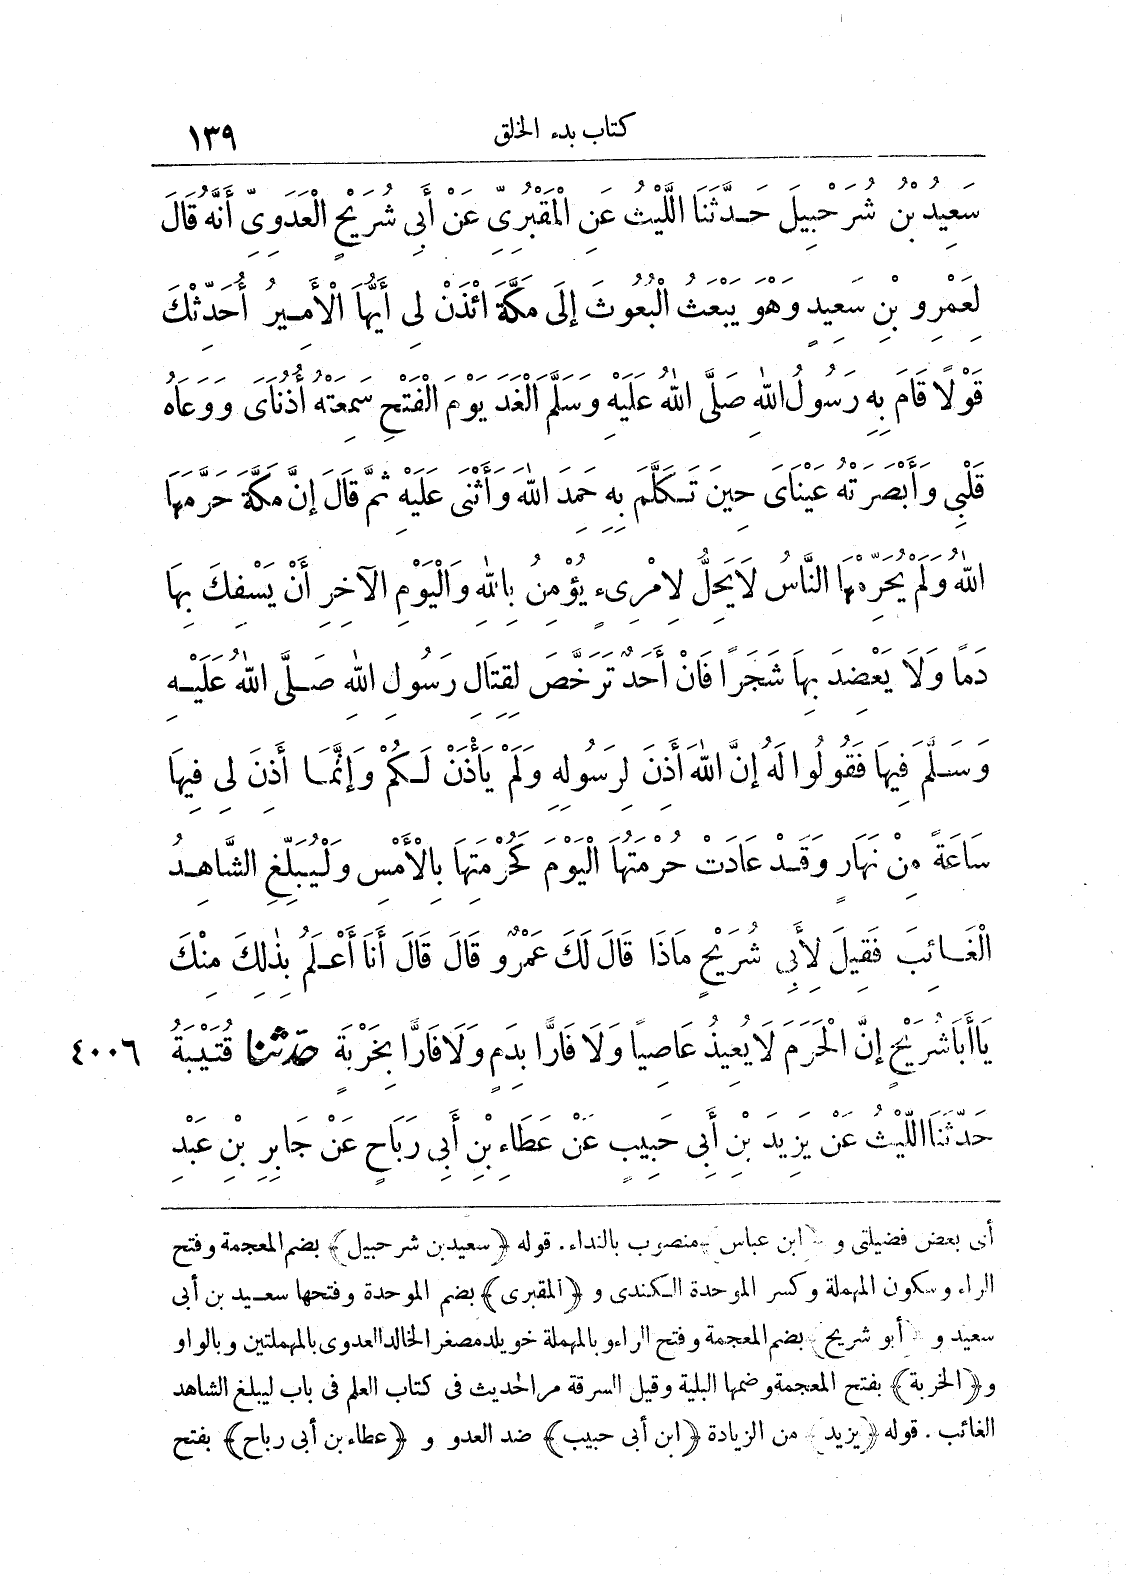 كتاب بدء الخلق ١٣٩
سَعِيدُ بْنُ شُرَحْبِيلَ حَدَّثَنَا اللَّيْثُ عَنِ الْمَقْبُرِيِّ عَنْ أَبِى شُرَيْحٍ الْعَدَوِىِّ أَنَّهُ قَالَ
لِعَمْرِو بْنِ سَعِيدٍ وَهْوَ يَبْعَثُ الْبُعُوثَ إِلَى مَكَّةَ ائْذَنْ لِى أَيُّهَا الْأَمِيرُ أُحَدِّثْكَ
قَوْلًا قَامَ بِهِ رَسُولُ اللهِ صَلَّى اللهُ عَلَيْهِ وَسَلَّمَ الْغَدَ يَوْمَ الْفَتْحِ سَمِعَتْهُ أُذُنَاىَ وَوَعَاهُ
قَلْبِى وَأَبْصَرَتْهُ عَيْنَاىَ حِينَ تَكَلَّمَ بِهِ حَمِدَ اللهَ وَأَثْنَى عَلَيْهِ ثُمَّ قَالَ إِنَّ مَكَّةَ حَرَّمَهَا
اللهُ وَلَمْ يُحَرِّمْهَا النَّاسُ لَا يَحِلُّ لِامْرِىءٍ يُؤْمِنُ بِاللهِ وَالْيَوْمِ الآخِرِ أَنْ يَسْفِكَ بِهَا
دَمًا وَلَا يَعْضِدَ بِهَا شَجَرًا فَانْ أَحَدٌ تَرَخَّصَ لِقِتَالِ رَسُولِ اللهِ صَلَّى اللهُ عَلَيْهِ
وَسَلَّمَ فِيهَا فَقُولُوا لَهُ إِنَّ اللهَ أَذِنَ لِرَسُولِهِ وَلَمْ يَأْذَنْ لَكُمْ وَإِنَّمَا أَذِنَ لِى فِيهَا
سَاعَةً مِنْ نَهَارٍ وَقَدْ عَادَتْ حُرْمَتُهَا الْيَوْمَ كَحُرْمَتِهَا بِالْأَمْسِ وَلْيُبَلِّغِ الشَّاهِدُ
الْغَائِبَ فَقِيلَ لِأَبِى شُرَيْحٍ مَاذَا قَالَ لَكَ عَمْرٌو قَالَ قَالَ أَنَا أَعْلَمُ بِذٰلِكَ مِنْكَ
يَا أَبَا شُرَيْحٍ إِنَّ الْحَرَمَ لَا يُعِيذُ عَاصِيًا وَلَا فَارًّا بِدَمٍ وَلَا فَارًّا بِخَرْبَةٍ حدثنا قُتَيْبَةُ ٤٠٠٦
حَدَّثَنَا اللَّيْثُ عَنْ يَزِيدَ بْنِ أَبِى حَبِيبٍ عَنْ عَطَاءِ بْنِ أَبِى رَبَاحٍ عَنْ جَابِرِ بْنِ عَبْدِ
أى بعض فضيلتى و ﴿ابن عباس﴾ منصوب بالنداء. قوله ﴿سعيد بن شرحبيل﴾ بضم المعجمة وفتح
الراء وسكون المهملة وكسر الموحدة الكندى و ﴿المقبرى﴾ بضم الموحدة وفتحها سعيد بن أبى
سعيد و ﴿أبو شريح﴾ بضم المعجمة وفتح الراء وبالمهملة خويلد مصغر الخالد العدوى بالمهملتين وبالواو
و﴿الخربة﴾ بفتح المعجمة وضمها البلية وقيل السرقة مر الحديث فى كتاب العلم فى باب ليبلغ الشاهد
الغائب. قوله ﴿يزيد﴾ من الزيادة ﴿ابن أبى حبيب﴾ ضد العدو و ﴿عطاء بن أبى رباح﴾ بفتح